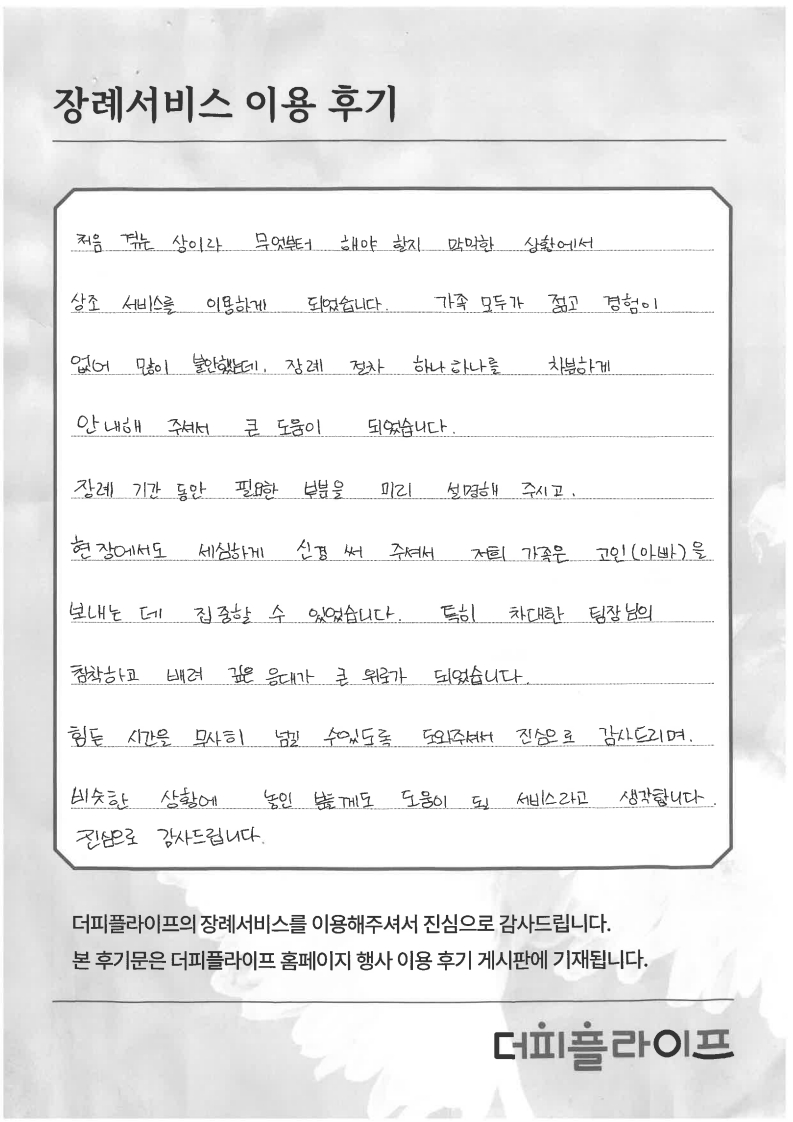 장례서비스 이용 후기
처음 겪는 상이라 무엇부터 해야 할지 막막한 상황에서
상조 서비스를 이용하게 되었습니다. 가족 모두가 젊고 경험이
없어 많이 불안했는데, 장례 절차 하나하나를 차분하게
안내해 주셔서 큰 도움이 되었습니다.
장례 기간 동안 필요한 부분을 미리 설명해 주시고,
현장에서도 세심하게 신경 써 주셔서 저희 가족은 고인(아빠)을
보내는 데 집중할 수 있었습니다. 특히 차대한 팀장님의
침착하고 배려 깊은 응대가 큰 위로가 되었습니다.
힘든 시간을 무사히 넘길 수있도록 도와주셔서 진심으로 감사드리며,
비슷한 상황에 놓인 분들께도 도움이 될 서비스라고 생각합니다.
진심으로 감사드립니다.
더피플라이프의 장례서비스를 이용해주셔서 진심으로 감사드립니다.
본 후기문은 더피플라이프 홈페이지 행사 이용 후기 게시판에 기재됩니다.
더피플라이프